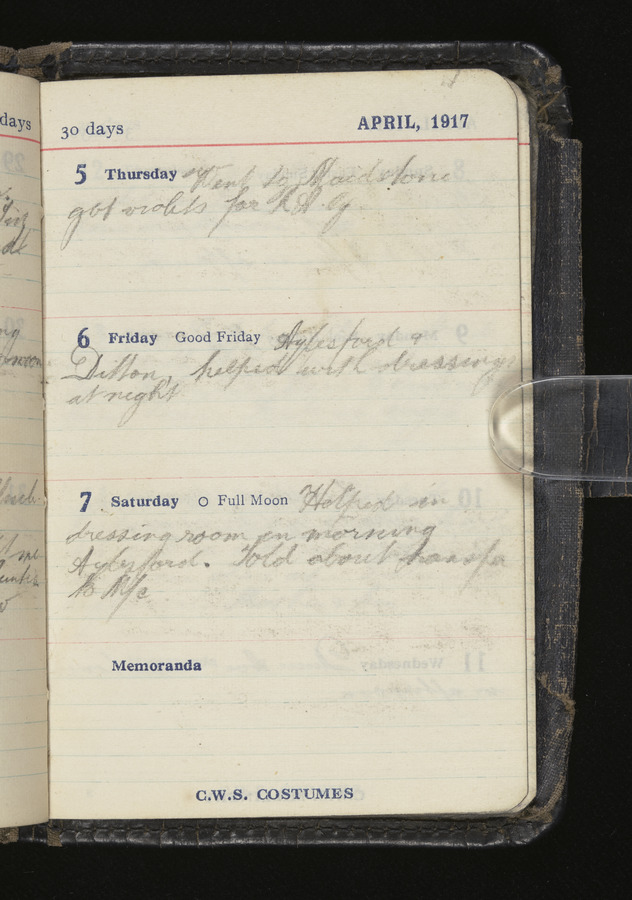 days
30 days
APRIL, 1917
5 Thursday Went to Maidstone
got violets for
6 Friday Good Friday Aylesford &
Ditton, helped with dressings
at night
7 Saturday O Full Moon Helped in
dressing room in morning
Aylesford. Told about transfer
to
Memoranda
C.W.S. COSTUMES